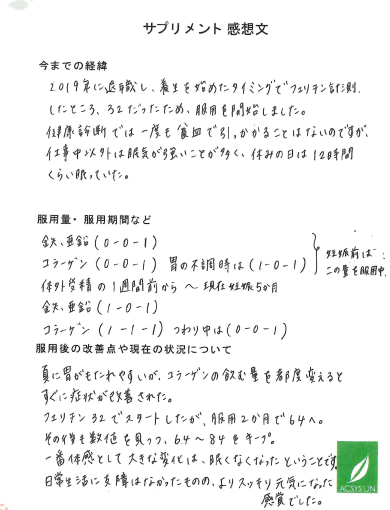 サプリメント 感想文
今までの経緯
2019年に退職し、養生を始めたタイミングでフェリチン計測。
したところ、32だったため、服用を開始しました。
健康診断では一度も貧血で引っかかることはないのですが、
仕事中以外は眠気が強いことが多く、休みの日は12時間
くらい眠っていた。
服用量・服用期間など
鉄、亜鉛 (0-0-1)
コラーゲン (0-0-1) 胃の不調時は (1-0-1)
妊娠前は
この量を服用中
体外受精の1週間前から〜現在妊娠5か月
鉄、亜鉛 (1-0-1)
コラーゲン (1-1-1) つわり中は (0-0-1)
服用後の改善点や現在の状況について
真に胃がもたれやすいが、コラーゲンの飲む量を都度変えると
すぐに症状が改善された。
フェリチン32でスタートしたが、服用2か月で64へ。
その後も数値を見つつ、64〜84をキープ。
一番体感として大きな変化は、眠くなくなったということです
日常生活に支障はなかったものの、よりスッキリ元気になった
感覚でした。
ACSYS'UN